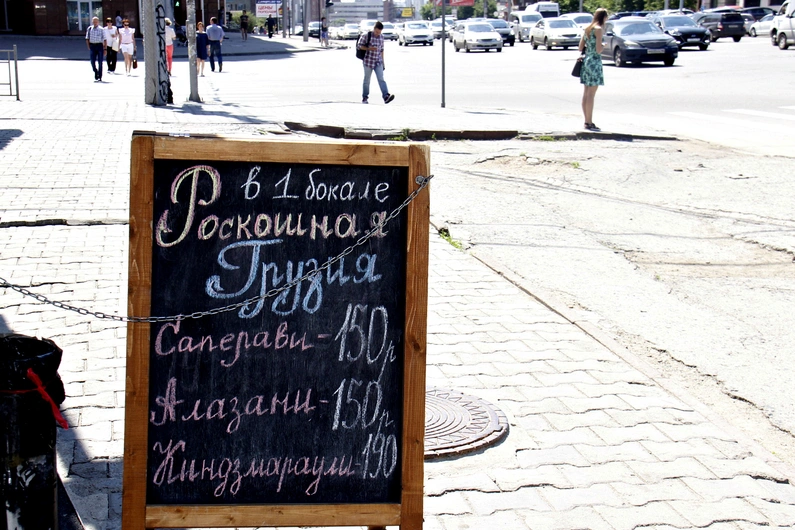 в 1 бокале
Роскошная
Грузия
Саперави - 150 р
Алазани - 150 р
Киндзмараули - 190